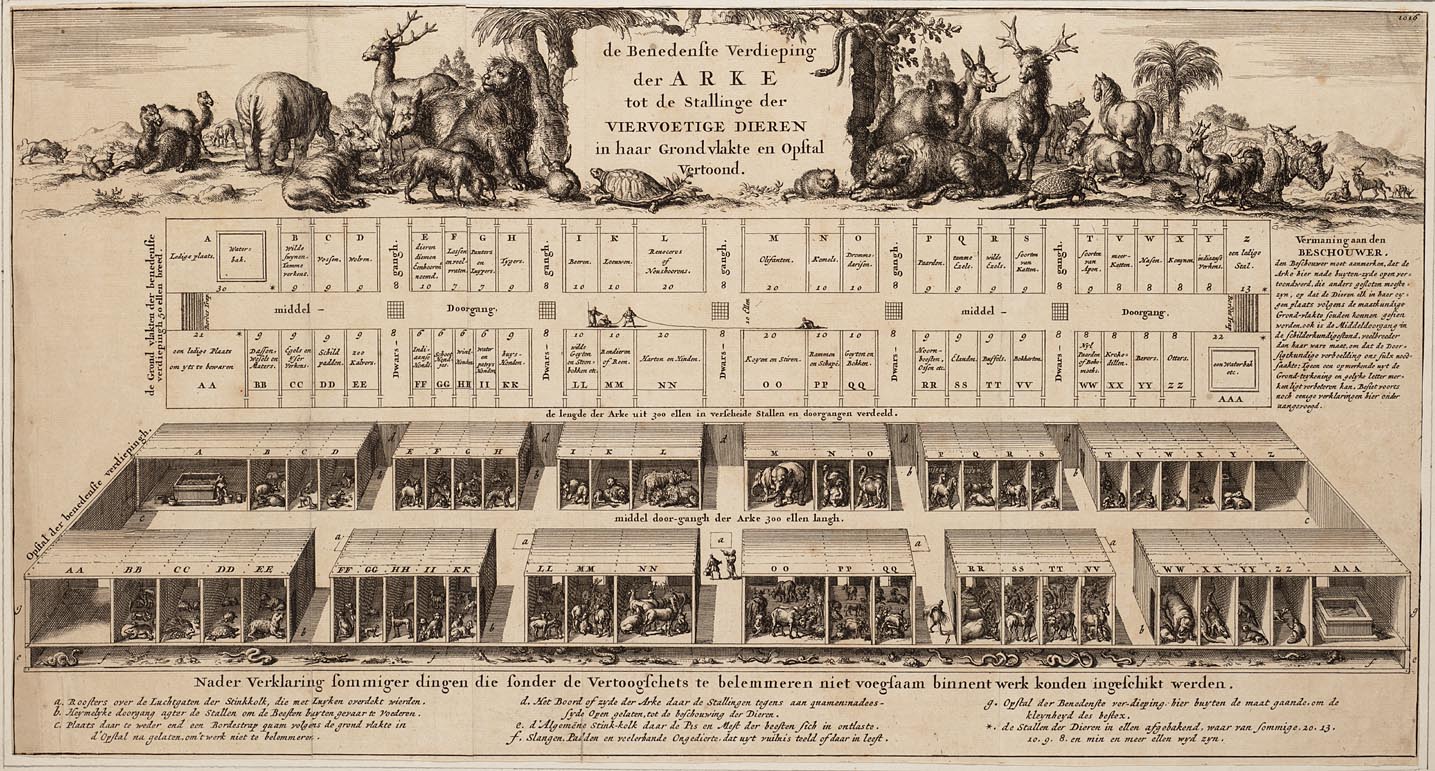 1016
de Benedenste Verdieping
der ARKE
tot de Stallinge der
VIERVOETIGE DIEREN
in haar Grond vlakte en Opstal
Vertoond.
de Grond vlakten der benedenste
verdiepingh 50 ellen breed.
A
Ledige plaats.
Water-
bak.
30
*
B
wilde
suynen
tamme
verkens.
9
C
Vossen.
9
D
Wolven.
9
gangh.
8
E
dieren
diemen
Eenhooren
noemd.
10
F
Lossen
en veel-
vraten
7
G
Panters
en
Luypers.
7
H
Tygers.
9
gangh.
8
I
Beeren.
10
K
Leeuwen.
10
L
Renoceros
of
Neushoorens.
20
gangh.
8
M
Olifanten.
20
N
Kemels.
10
O
Dromme-
darisen.
10
gangh.
8
P
Paarden.
9
Q
tamme
Ezels.
9
R
wilde
Ezels.
9
S
soorten
van
Katten.
9
gangh.
8
T
soorten
van
Apen.
9
V
meer-
Katten.
9
W
Hasen.
9
X
Konynen.
9
Y
indiaanse
Verkens.
9
Z
een ledige
Stal.
13 *
middel -
Doorgang.
10 Ellen
middel -
Doorgang.
21 *
een ledige Plaats
om yts te bewaren
AA
9
Dassen.
Wesels en
Maters.
BB
9
Egels en
Yser
Verkens.
CC
9
Schild
padden.
DD
9
zee
Kalvers.
EE
8
Dwars -
6
Indi-
aanse
Hondt.
FF
6
Schoot
Hond-
jes.
GG
6
Wind-
Honden.
HH
6
Water
en
patrys
Honden
II
9
Huys-
Honden.
KK
8
Dwars -
10
wilde
Geyten
en Steen-
bokken etc.
LL
10
Rendieren
of Reen.
MM
20
Harten en Hinden.
NN
8
Dwars -
20
Koyen en Stiren.
OO
10
Rammen
en Schape.
PP
10
Geyten en
Bokken.
QQ
8
Dwars -
9
Hoorn-
beesten,
Ossen etc.
RR
9
Elanden.
SS
9
Buffels.
TT
9
Bokharten.
VV
8
Dwars -
9
Nyl
Paarden
of Behe-
moths.
WW
8
Kroko-
dillen.
XX
8
Bevers.
YY
8
Otters.
ZZ
22 *
een Waterbak
etc.
AAA
Vermaning aan den
BESCHOUWER.
den Beschouwer moet aanmerken, dat de
Arke hier nade buyten-zyde open ver-
toond werd, die anders gesloten moeste
zyn, op dat de Dieren elk in haer ey-
gen plaats volgens de maatkundige
Grond-vlakte souden konnen gesien
werden, ook is de Middeldoorgang in
de schilderkundigestand, veel breeder
dan haar ware maat, om dat de Door-
sigtkundige verbeelding ons sulx nood-
saakte: t'geen een opmerkende uyt de
Grond-teykening en gelyke letter mer-
ken ligt verbeteren kan. Besiet voorts
noch eenige verklaringen hier onder
aangevoegd.
de lengde der Arke uit 300 ellen in verscheide Stallen en doorgangen verdeeld.
Opstal der benedenste verdiepingh.
A B C D d E F G H d I K L d M N O d P Q R S d T V W X Y Z
c b b b b c
middel door-gangh der Arke 300 ellen langh.
a a a a a
AA BB CC DD EE FF GG HH II KK LL MM NN OO PP QQ RR SS TT VV WW XX YY ZZ AAA
g b b b g
e f f e
Nader Verklaring sommiger dingen die sonder de Vertoogschets te belemmeren niet voegsaam binnent werk konden ingeschikt werden.
a. Roosters over de Luchtgaten der Stinkkolk, die met Luyken overdekt wierden.
b. Heymelyke doorgang agter de Stallen om de Beesten buyten gevaar te Voederen.
c. Plaats daar te weder end een Bordestrap quam volgens de grond vlakte in
d'Opstal na gelaten, om't werk niet te belemmeren.
d. Het Boord of zyde der Arke daar de Stallingen tegens aan quamen, nadees-
syde Open gelaten, tot de beschouwing der Dieren.
e. d'Algemeyne Stink-kolk daar de Pis en Mest der beesten sich in ontlaste.
f. Slangen, Padden en veelerhande Ongedierte, dat uyt vuilnis teeld of daar in leeft.
g. Opstal der Benedenste ver-dieping: hier buyten de maat gaande, om de
kleynheyd des bestex.
*. de Stallen der Dieren in ellen afgebakend, waar van sommige. 20. 13.
10. 9. 8. en min en meer ellen wyd zyn.